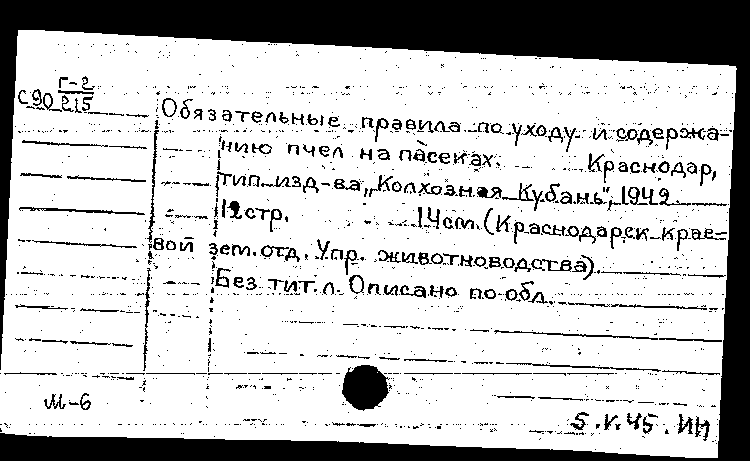 Г-2
С90 215
Обязательные правила по уходу и содержа-
нию пчел на пасеках. Краснодар,
тип. изд-ва „Колхозная Кубань", 1942.
12стр. 14см. (Краснодарск крае-
вой зем. отд. Упр. животноводства).
Без тит. л. Описано по обл.
М-6
5.V.45. ИИ